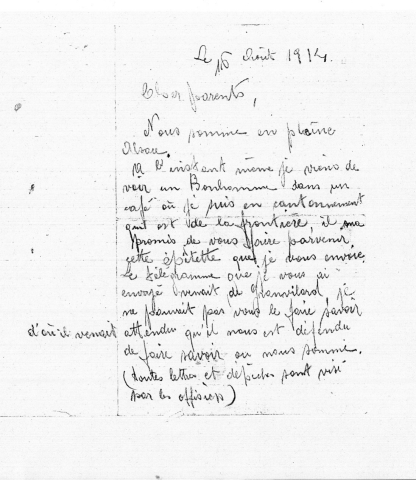 Le 16 Août 1914.
Cher parents,
Nous somme en pleine
Alsace.
A l'instant même je viens de
voir un Bonhomme dans un
café où je suis en cantonnement
qui est de la frontière, il ma
promis de vous faire parvenir
cette épitette que je vous envoie.
Le télégramme que je vous ai
envoyé venait de Granvilard, je
ne pouvait pas vous le faire savoir
d'où il venait attendu qu'il nous est défendu
de faire savoir ou nous somme.
(toutes lettres et dépêches sont visé
par les officiers)